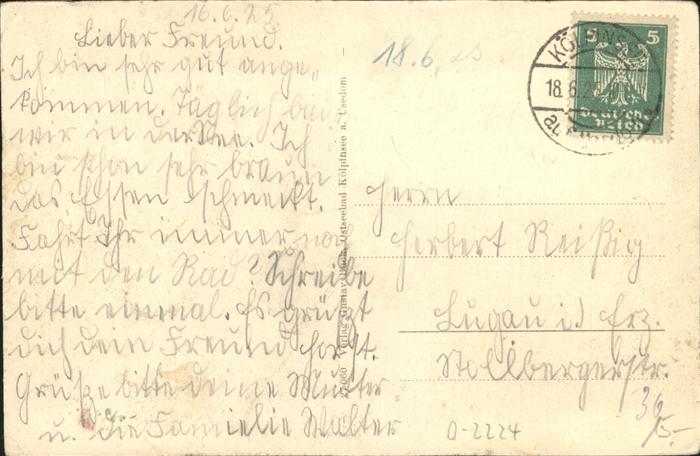 16.6.25
Lieber Freund.
Ich bin sehr gut ange-
kommen. Täglich baden
wir in der See. Ich
bin schon sehr braun
das Essen schmeckt.
Fahrt Ihr immer noch
mit den Rad? Schreibe
bitte einmal. Es grüßt
dich dein Freund Horst.
Grüße bitte deine Mutter
u. die Familie Walter
18.6.25
Verlag Gustav Ostseebad Kölpinsee a. Usedom
KÖLPINSEE
18.6.25
5 5
Deutsches
Reich
Herrn
Herbert Reißig
Lugau i) Erz.
Stollbergerstr.
36
5,-
0-2224